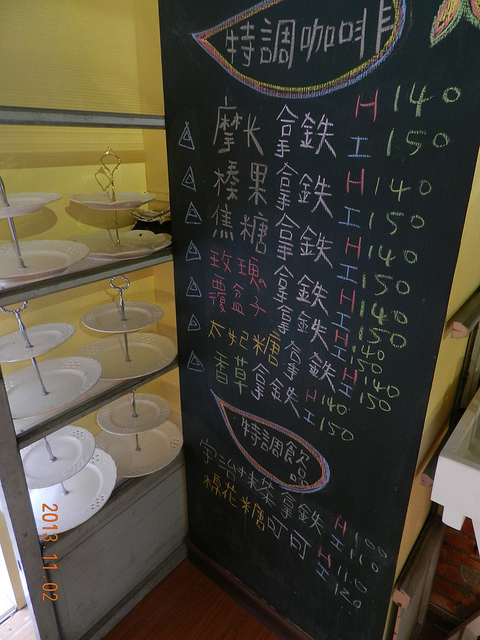 特調咖啡
摩卡拿鉄 H 140
I 150
榛果拿鉄 H 140
I 150
焦糖拿鉄 H 140
I 150
玫瑰拿鉄 H 140
I 150
覆盆子拿鉄 H 140
I 150
太妃糖拿鉄 H 140
I 150
香草拿鉄 H 140
I 150
特調飲品
宇治抹茶拿鉄 H 100
I 110
棉花糖可可 H 110
I 120
2013.11.02